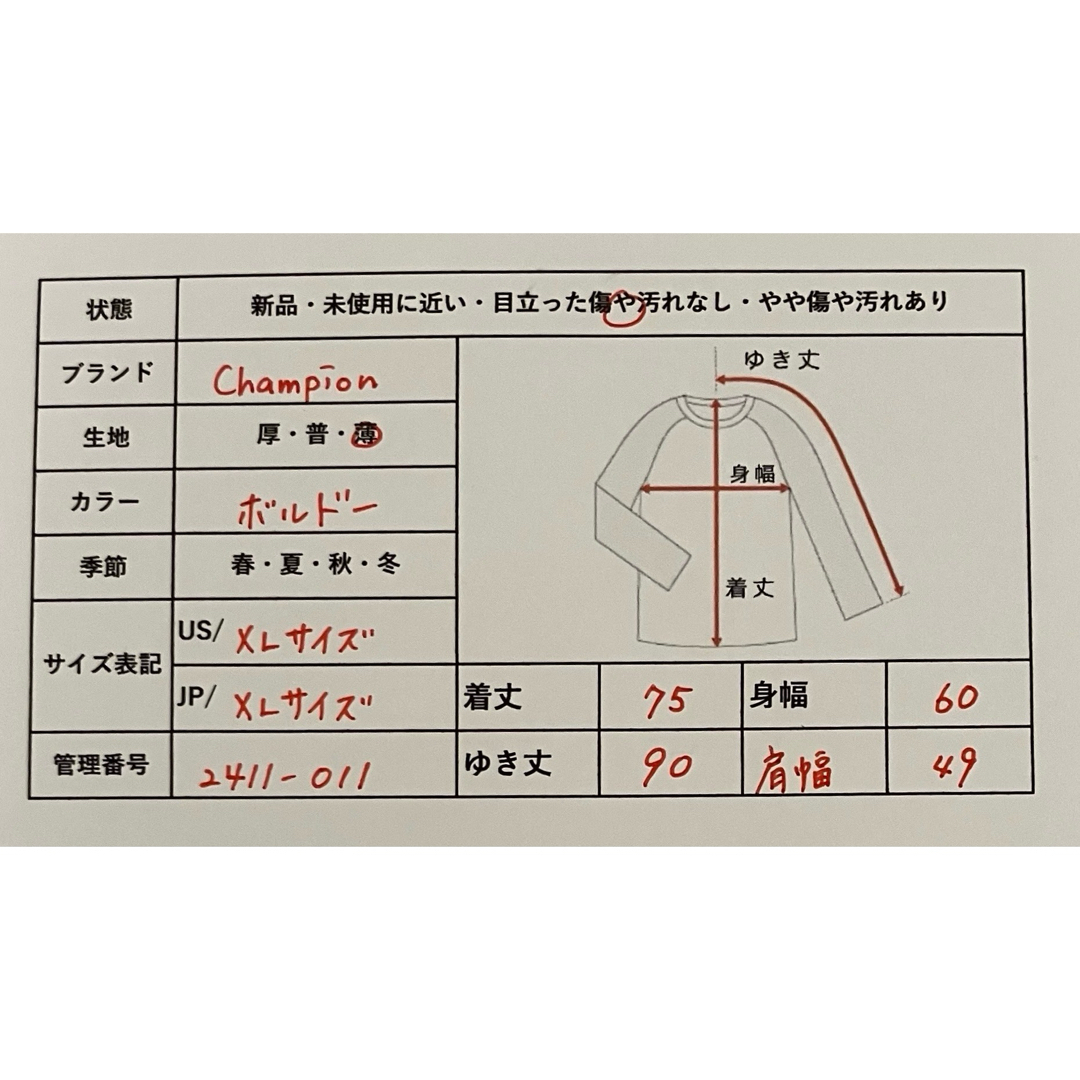 状態 新品・未使用に近い・目立った傷や汚れなし・やや傷や汚れあり
ブランド Champion
生地 厚・普・薄
カラー ボルドー
季節 春・夏・秋・冬
ゆき丈
身幅
着丈
サイズ表記
US/ XLサイズ
JP/ XLサイズ
着丈 75 身幅 60
管理番号 2411-011 ゆき丈 90 肩幅 49